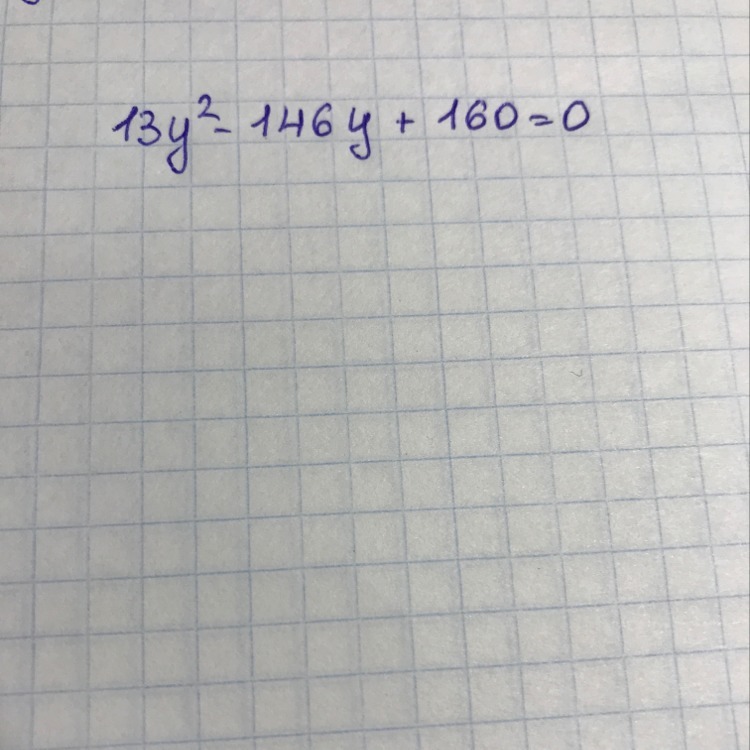 13y² - 146y + 160 = 0